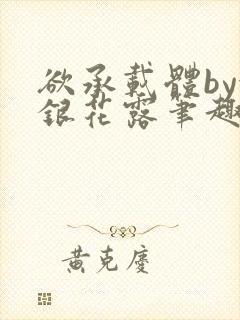 欲承載體by
銀花露筆趣
黃克慶